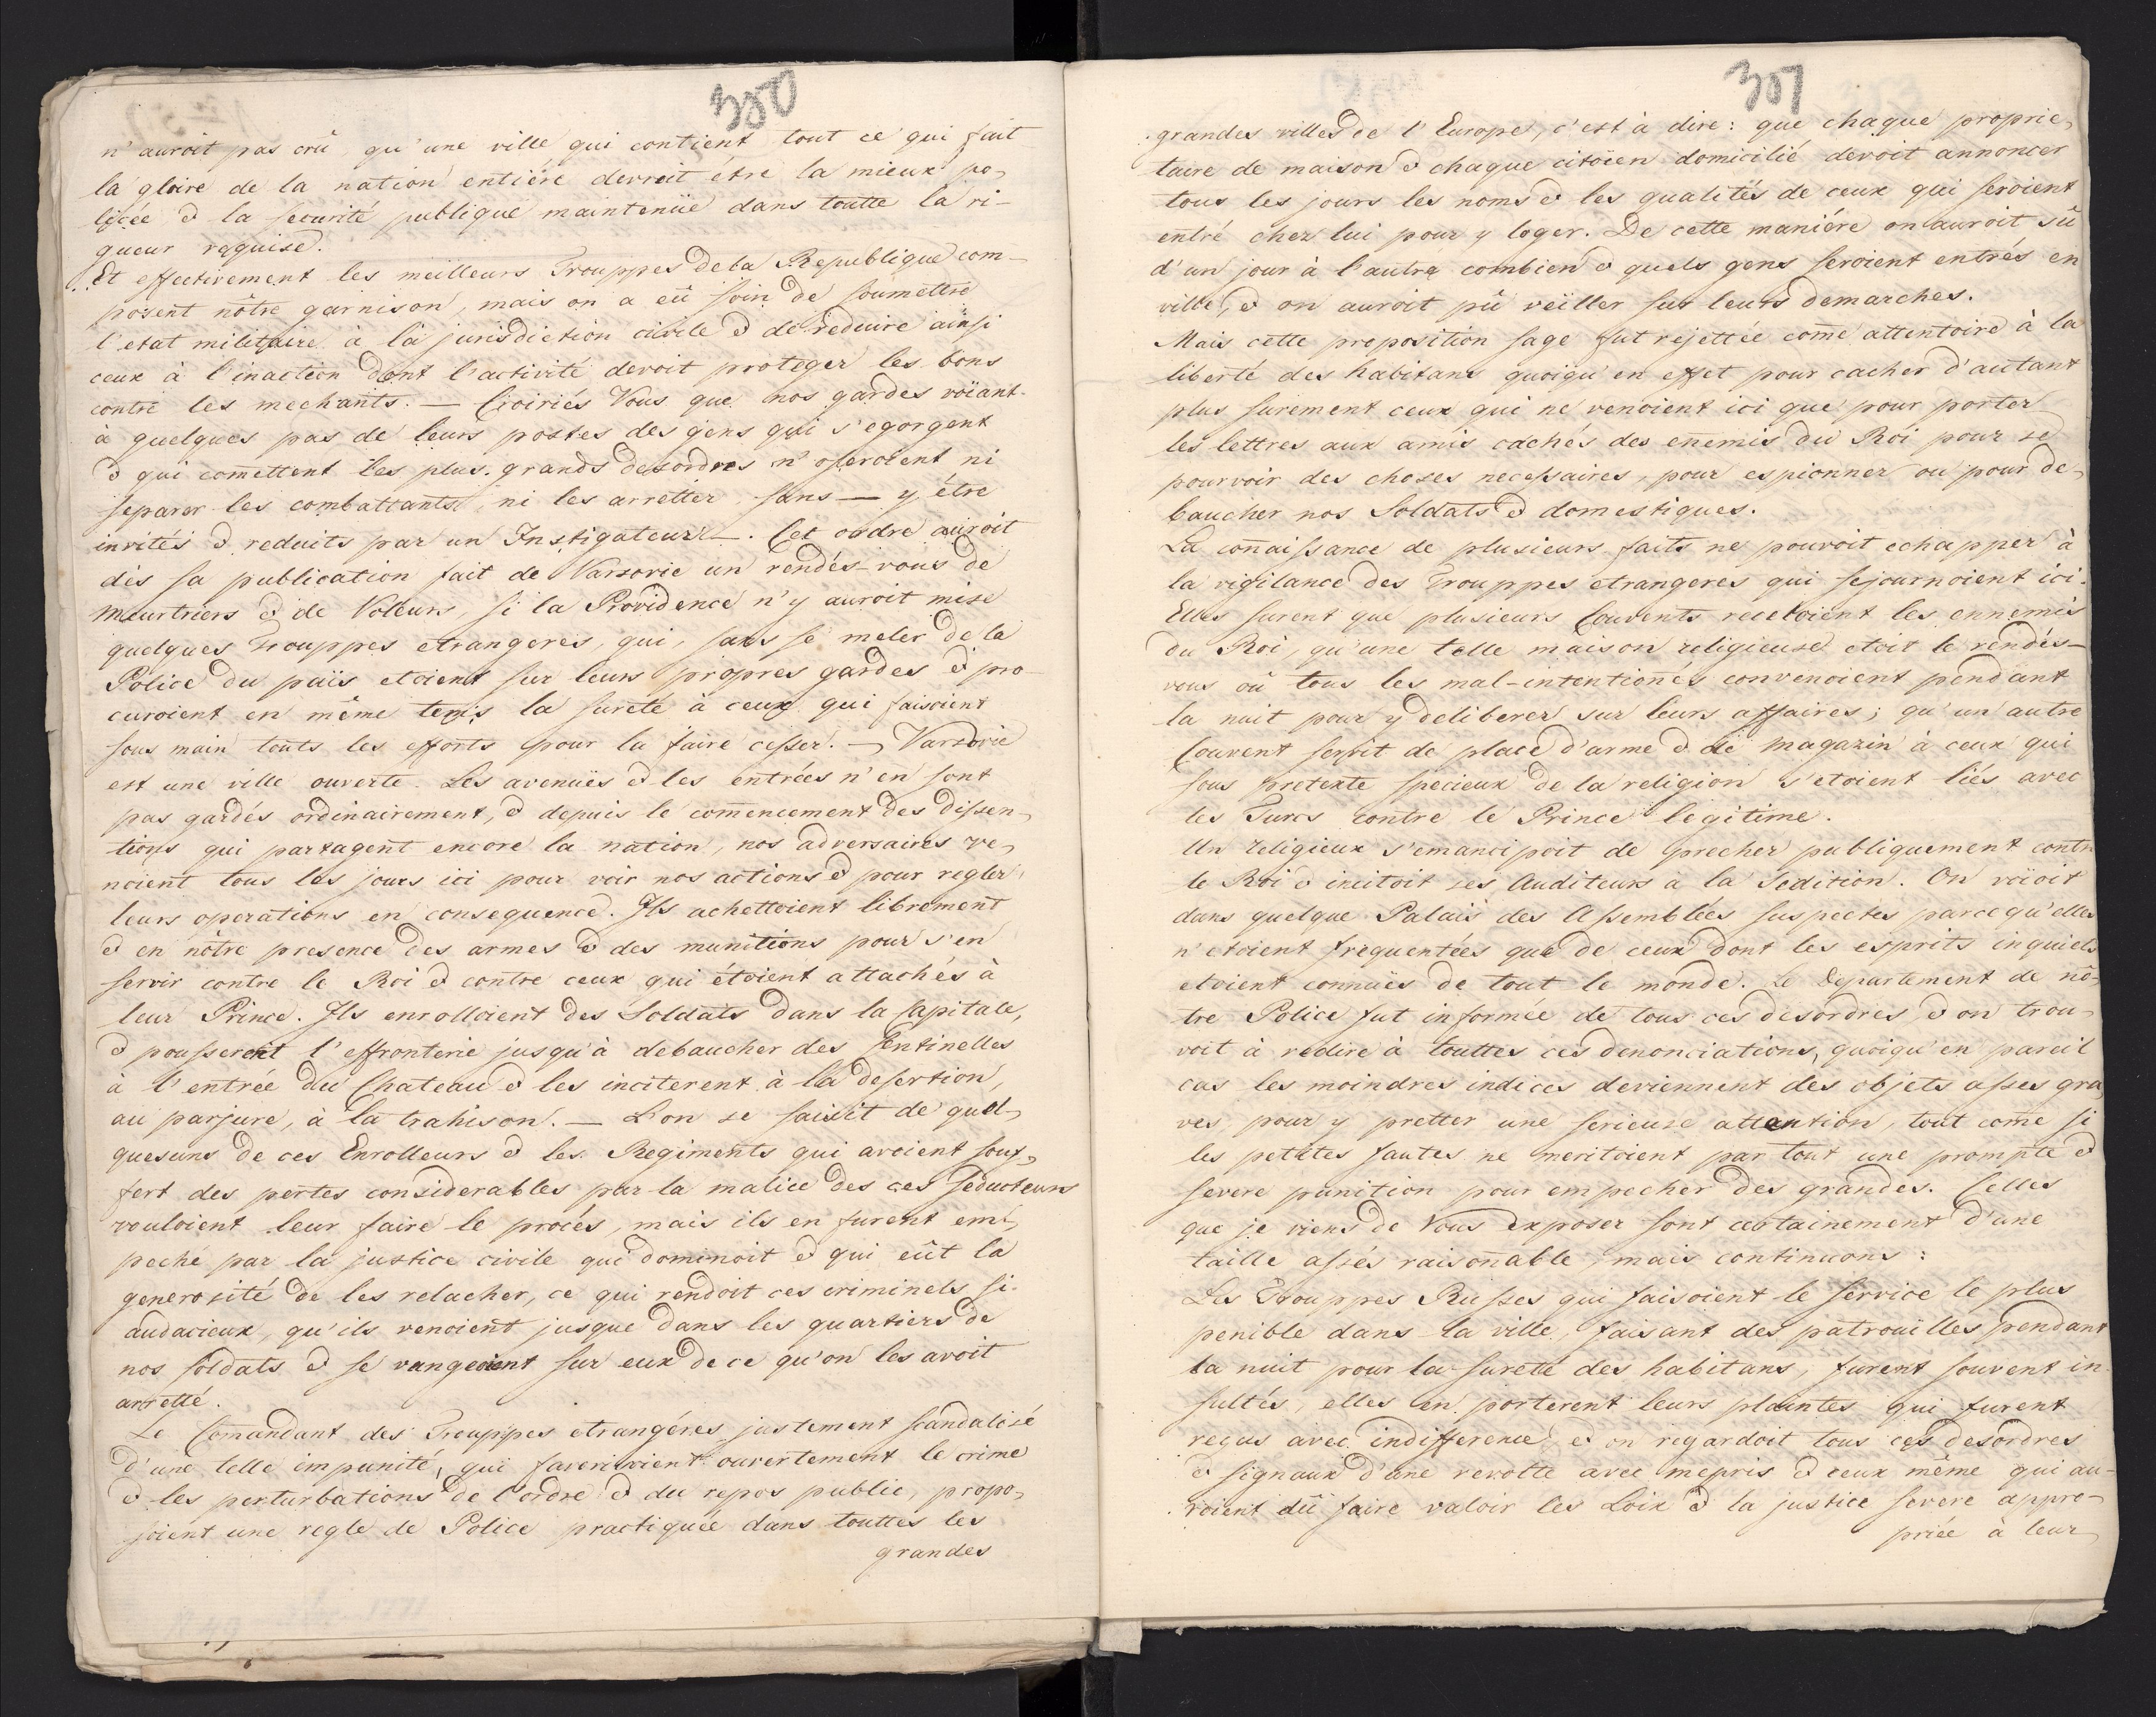 350
n'auroit pas crû, qu'une ville qui contient tout ce qui fait
la gloire de la nation entiére devroit être la mieux po,
licée & la securité publique maintenüe dans toutte la ri-
gueur requise.
Et effectivement les meilleurs Trouppes de la Republique com-
posent nôtre garnison, mais on a eû soin de soumettre
l'etat militaire à la jurisdiction civile & de reduire ainsi
ceux à l'inaction dont l'activité devoit proteger les bons
contre les mechants. — Croiriés Vous que nos gardes voïant
à quelques pas de leurs postes des gens qui s'egorgent
& qui comettent les plus grands desordres n'oseroient ni
separer les combattants, ni les arretter sans — y être
invités & reduits par un Instigateur —. Cet ordre auroit
dès sa publication fait de Varsovie un rendés-vous de
meurtriers & de Voleurs, si la Providence n'y auroit mise
quelques Trouppes etrangeres, qui, sans se meler de la
Police du païs etoient sur leurs propres gardes & pro-
curoient en même tems la sureté à ceux qui faisoient
sous main touts les efforts pour la faire cesser. — Varsovie
est une ville ouverte. Les avenuës & les entrées n'en sont
pas gardés ordinairement, & depuis le comencement des dissen,
tions qui partagent encore la nation, nos adversaires ve,
noient tous les jours ici pour voir nos actions & pour regler
leurs operations en consequence. Ils achettoient librement
& en nôtre presence des armes & des munitions pour s'en
servir contre le Roi & contre ceux qui étoient attachés à
leur Prince. Ils enrolloient des Soldats dans la Capitale,
& pousserent l'effronterie jusqu'à debaucher des sentinelles
à l'entrée du Chateau & les inciterent à la desertion
au parjure, à la trahison. — L'on se saisit de quel,
quesuns de ces Enrolleurs & les Regiments qui avoient souf,
fert des pertes considerables par la malice des ces seducteurs
vouloient leur faire le procés, mais ils en furent em,
peché par la justice civile qui dominoit & qui eût la
generosité de les relacher, ce qui rendoit ces criminels si
audacieux, qu'ils venoient jusque dans les quartiers de
nos soldats & se vangeoient sur eux de ce qu'on les avoit
arretté.
Le Comandant des Trouppes etrangéres justement scandalisé
d'une telle impunité, qui favorisoient ouvertement le crime
& les perturbations de l'ordre & du repos public, propo,
soient une regle de Police practiquée dans touttes les
grandes
351
grandes villes de l'Europe, c'est à dire: que chaque proprie,
taire de maison & chaque citoïen domicilié devoit annoncer
tous les jours les noms & les qualités de ceux qui seroient
entré chez lui pour y loger. De cette maniére on auroit sû
d'un jour à l'autre combien & quels gens seroient entrés en
ville, & on auroit pû veïller sur leurs demarches.
Mais cette proposition sage fut rejettée come attentoire à la
liberté des habitans quoiqu'en effet pour cacher d'autant
plus surement ceux qui ne venoient ici que pour porter
les lettres aux amis cachés des enemis du Roi pour se
pourvoir des choses necessaires, pour espionner ou pour de,
baucher nos Soldats & domestiques.
La conaissance de plusieurs faits ne pouvoit echapper à
la vigilance des Trouppes etrangeres qui sejournoient ici.
Elles surent que plusieurs Couvents recevoient les ennemis
du Roi, qu'une telle maison religieuse etoit le rendés-
vous où tous les mal-intentionés convenoient pendant
la nuit pour y deliberer sur leurs affaires; qu'un autre
Couvent servit de place d'arme & de magazin à ceux qui
sous pretexte specieux de la religion s'etoient liés avec
les Turcs contre le Prince legitime.
Un religieux s'emancipoit de precher publiquement contre
le Roi & incitoit ses Auditeurs à la Sedition. On voïoit
dans quelque Palais des Assemblées suspectes parcequ'elles
n'etoient frequentées que de ceux dont les esprits inquiets
etoient connuës de tout le monde. Le Departement de nô-
tre Police fut informée de tous ces desordres, & on trou-
voit à redire à touttes ces denonciations, quoiqu'en pareil
cas les moindres indices deviennent des objets asses gra,
ves, pour y pretter une serieuse attention, tout come si
les petites fautes ne meritoient par tout une prompte &
severe punition pour empecher des grandes. Celles
que je viens de Vous exposer sont certainement d'une
taille assés raisonable, mais continuons:
Les Trouppes Russes qui faisoient le service le plus
penible dans la ville, faisant des patrouilles pendant
la nuit pour la sureté des habitans, furent souvent in
sultés, elles en porterent leurs plaintes qui furent
reçus avec indifference, & on regardoit tous ces desordres
& signaux d'une revolte avec mepris & ceux même qui au-
roient dû faire valoir les Loix & la justice severe appro-
priée à leur